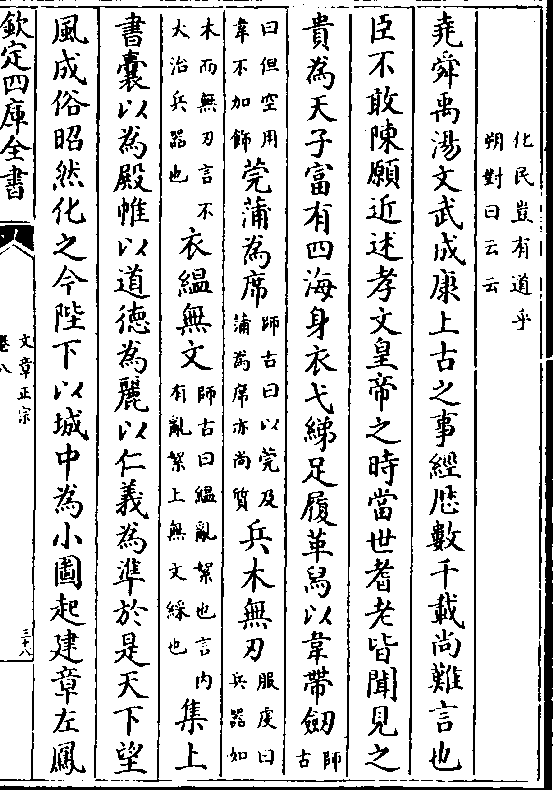 化民豈有道乎
朔對曰云云
堯舜禹湯文武成康上古之事經厯數千載尚難言也
臣不敢陳願近述孝文皇帝之時當世耆老皆聞見之
貴為天子富有四海身衣弋綈足履革舄以韋帶劒師古
曰但空用韋不加飾莞蒲為席師古曰以莞及蒲為席亦尚質兵木無刃服虔曰兵器如
木而無刃言不大治兵器也衣緼無文師古曰緼亂絮也言内有亂絮上無文綵也集上
書囊以為殿帷以道德為麗以仁義為凖於是天下望
風成俗昭然化之今陛下以城中為小圖起建章左鳳
欽定四庫全書
文章正宗
卷八
三十八